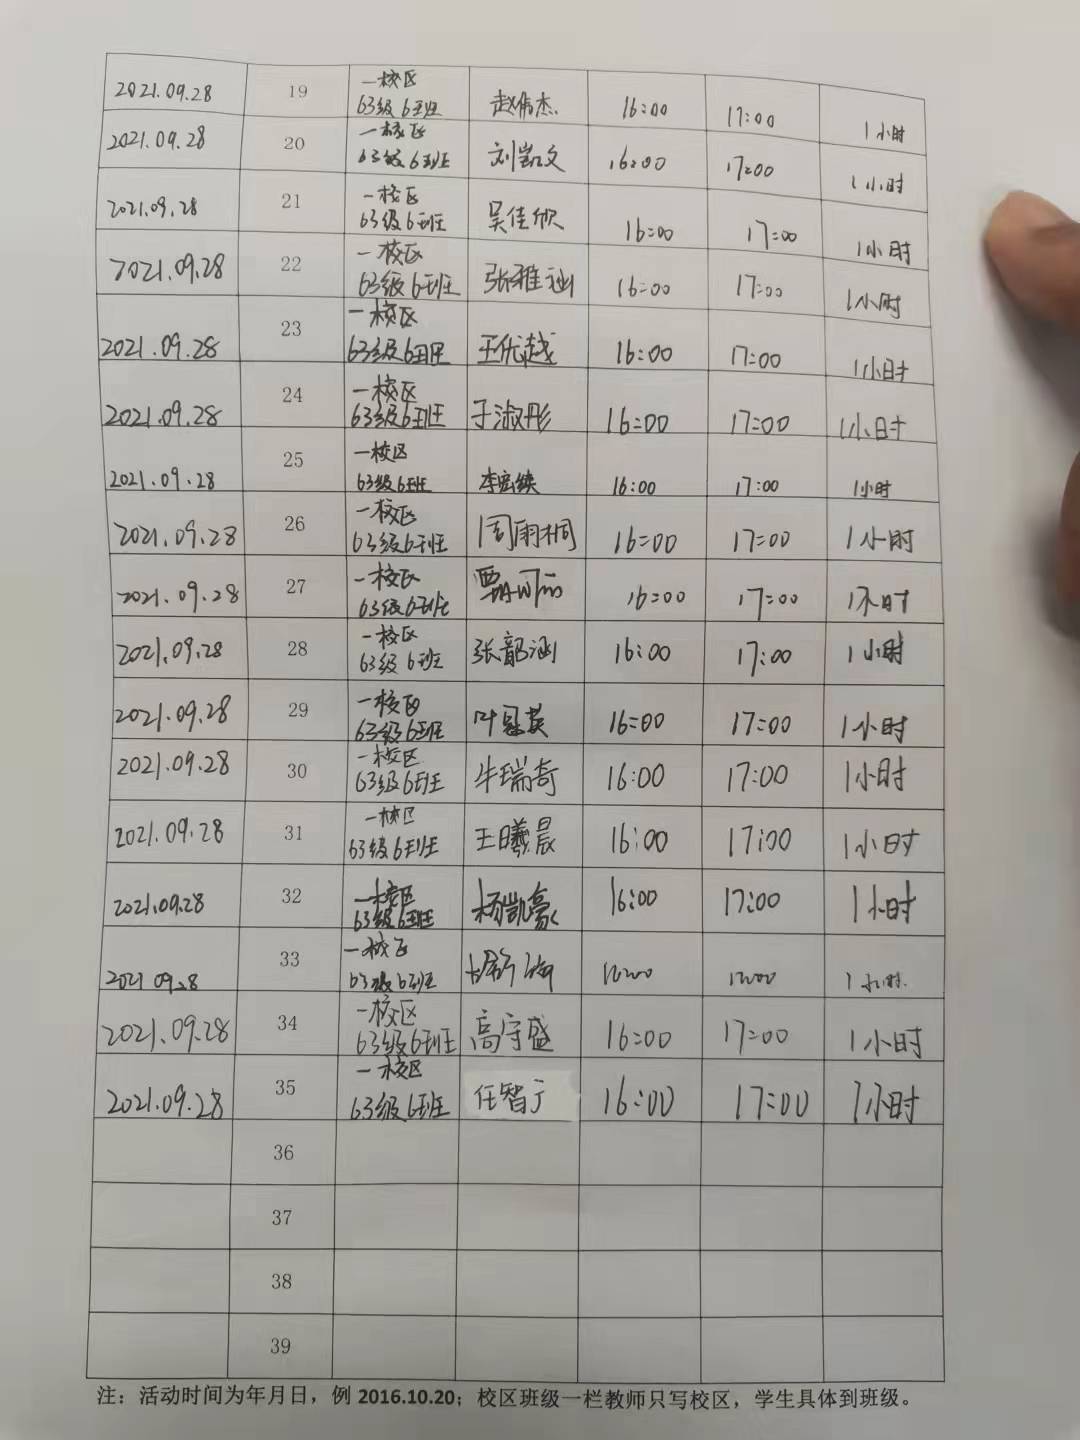 2021.09.28 19 一校区 63级6班 赵伟杰 16:00 17:00 1小时
2021.09.28 20 一校区 63级6班 刘凯文 16:00 17:00 1小时
2021.09.28 21 一校区 63级6班 吴佳欣 16:00 17:00 1小时
2021.09.28 22 一校区 63级6班 张雅涵 16:00 17:00 1小时
2021.09.28 23 一校区 63级6班 王优越 16:00 17:00 1小时
2021.09.28 24 一校区 63级6班 于淑彤 16:00 17:00 1小时
2021.09.28 25 一校区 63级6班 16:00 17:00 1小时
2021.09.28 26 一校区 63级6班 周雨桐 16:00 17:00 1小时
2021.09.28 27 一校区 63级6班 16:00 17:00 1小时
2021.09.28 28 一校区 63级6班 张韶涵 16:00 17:00 1小时
2021.09.28 29 一校区 63级6班 16:00 17:00 1小时
2021.09.28 30 一校区 63级6班 牛瑞奇 16:00 17:00 1小时
2021.09.28 31 一校区 63级6班 王曦晨 16:00 17:00 1小时
2021.09.28 32 一校区 63级6班 杨凯豪 16:00 17:00 1小时
2021.09.28 33 一校区 63级6班 1小时
2021.09.28 34 一校区 63级6班 高守盛 16:00 17:00 1小时
2021.09.28 35 一校区 63级6班 任智宁 16:00 17:00 1小时
36
37
38
39
注：活动时间为年月日，例 2016.10.20；校区班级一栏教师只写校区，学生具体到班级。